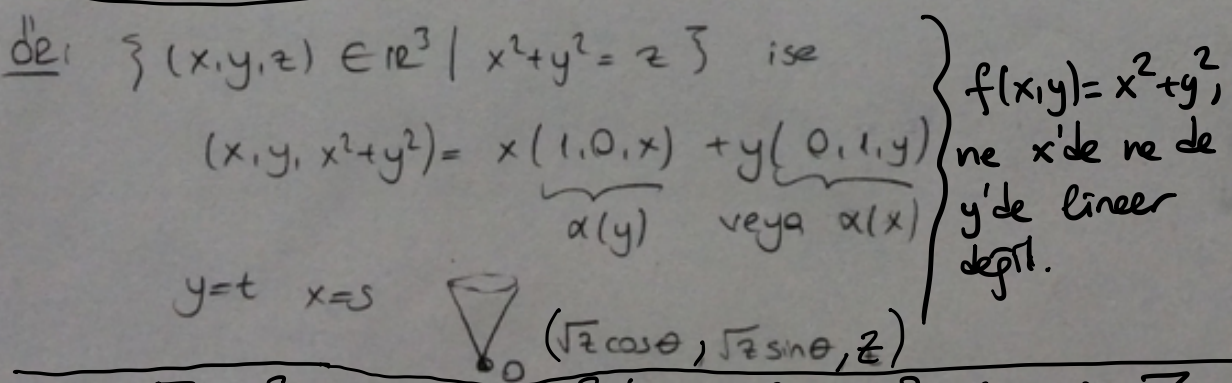 öe: { (x,y,z) ∈ ℝ³ | x²+y² = z } ise
(x, y, x²+y²) = x(1,0,x) + y(0,1,y)
α(y) veya α(x)
y=t x=s
O (√z cosθ, √z sinθ, z)
f(x,y) = x²+y²,
ne x'de ne de
y'de lineer
değil.